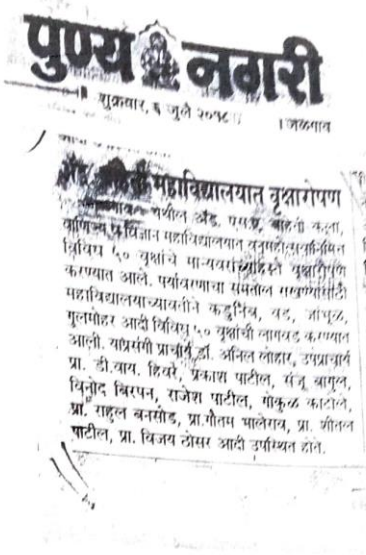 पुण्य नगरी
शुक्रवार, ६ जुलै २०१८
। जळगाव
महाविद्यालयात वृक्षारोपण
येथील अँड. एस.ए. बाहेती कला,
वाणिज्य व विज्ञान महाविद्यालयात वनमहोत्सवानिमित्त
विविध ५० वृक्षांचे मान्यवरांच्याहस्ते वृक्षारोपण
करण्यात आले. पर्यावरणाचा समतोल राखण्यासाठी
महाविद्यालयाच्यावतीने कडुनिंब, वड, जांभूळ,
गुलमोहर आदी विविध ५० वृक्षांची लागवड करण्यात
आली. याप्रसंगी प्राचार्य डॉ. अनिल लोहार, उपप्राचार्य
प्रा. डी.वाय. हिवरे, प्रकाश पाटील, संजू बागुल,
विनोद बिरपन, राजेश पाटील, गोकुळ काटोले,
प्रा. राहुल बनसोड, प्रा.गौतम भालेराव, प्रा. शीतल
पाटील, प्रा. विजय ठोसर आदी उपस्थित होते.